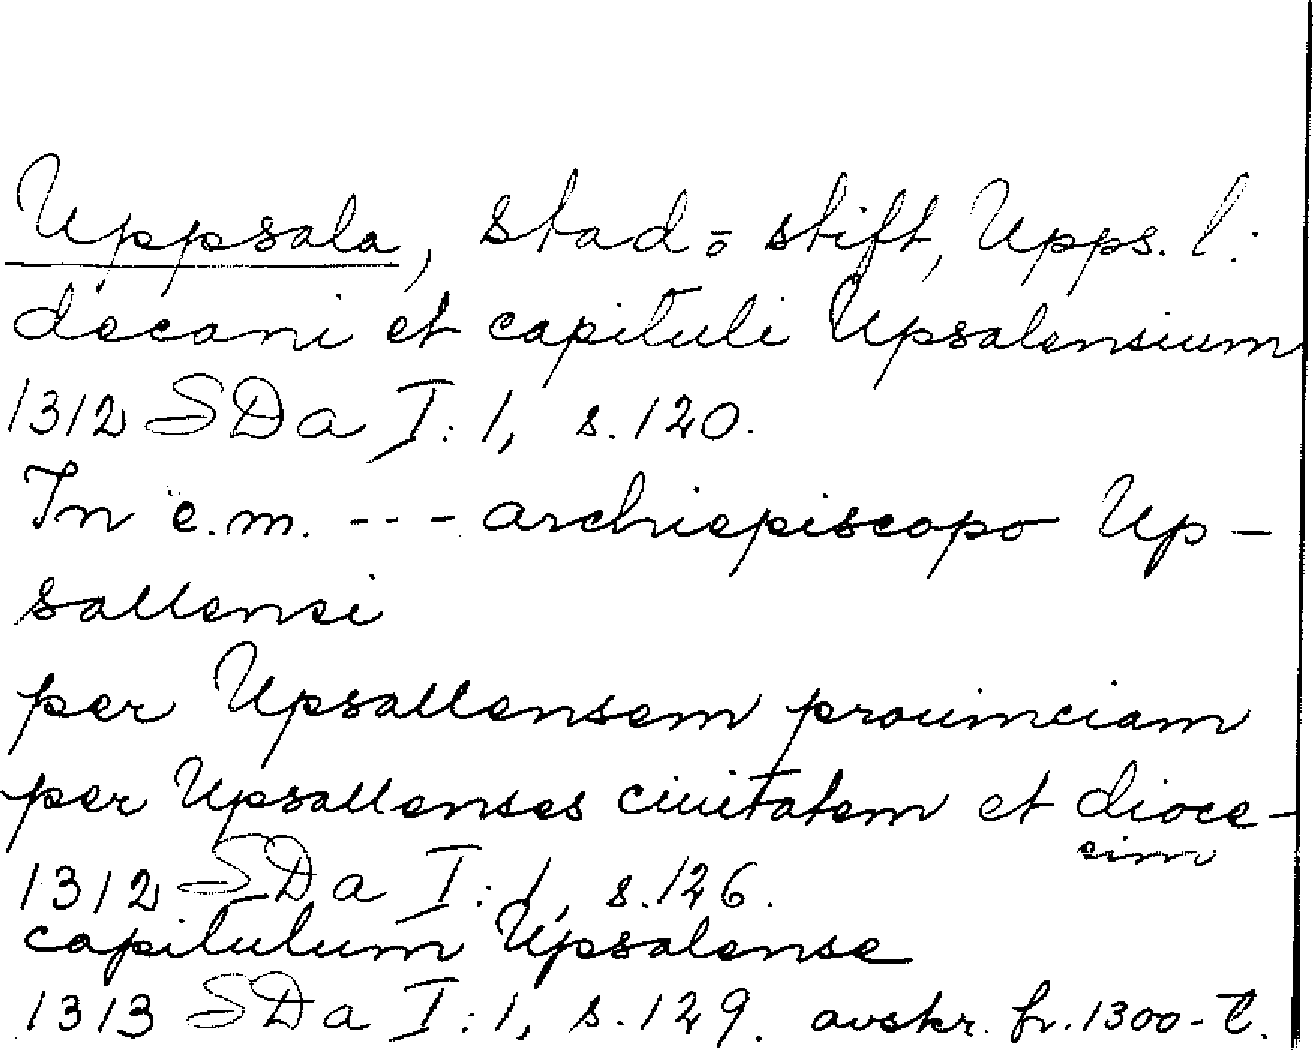 Uppsala, stad o stift, Upps. l.
decani et capituli Upsalensium
1312 SDa I:1, s.120.
In e.m. --- archiepiscopo Up-
sallensi
per Upsallensem prouinciam
per Upsallenses ciuitatem et dioce-
sim
1312 SDa I:1, s.126.
capitulum Upsalense
1313 SDa I:1, s.129. avskr. fr. 1300-t.